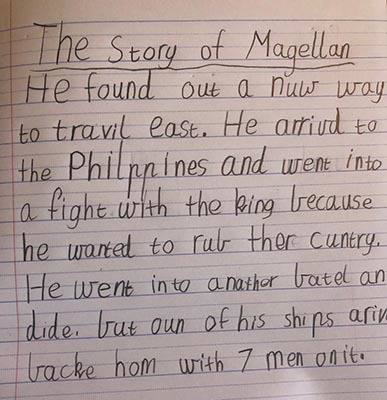 The Story of Magellan
He found out a nuw way
to travil east. He arrivd to
the Philppines and went into
a fight with the king because
he wanted to rub ther cuntry.
He went into anather batel an
dide. but oun of his ships ariv
backe hom with 7 men on it.